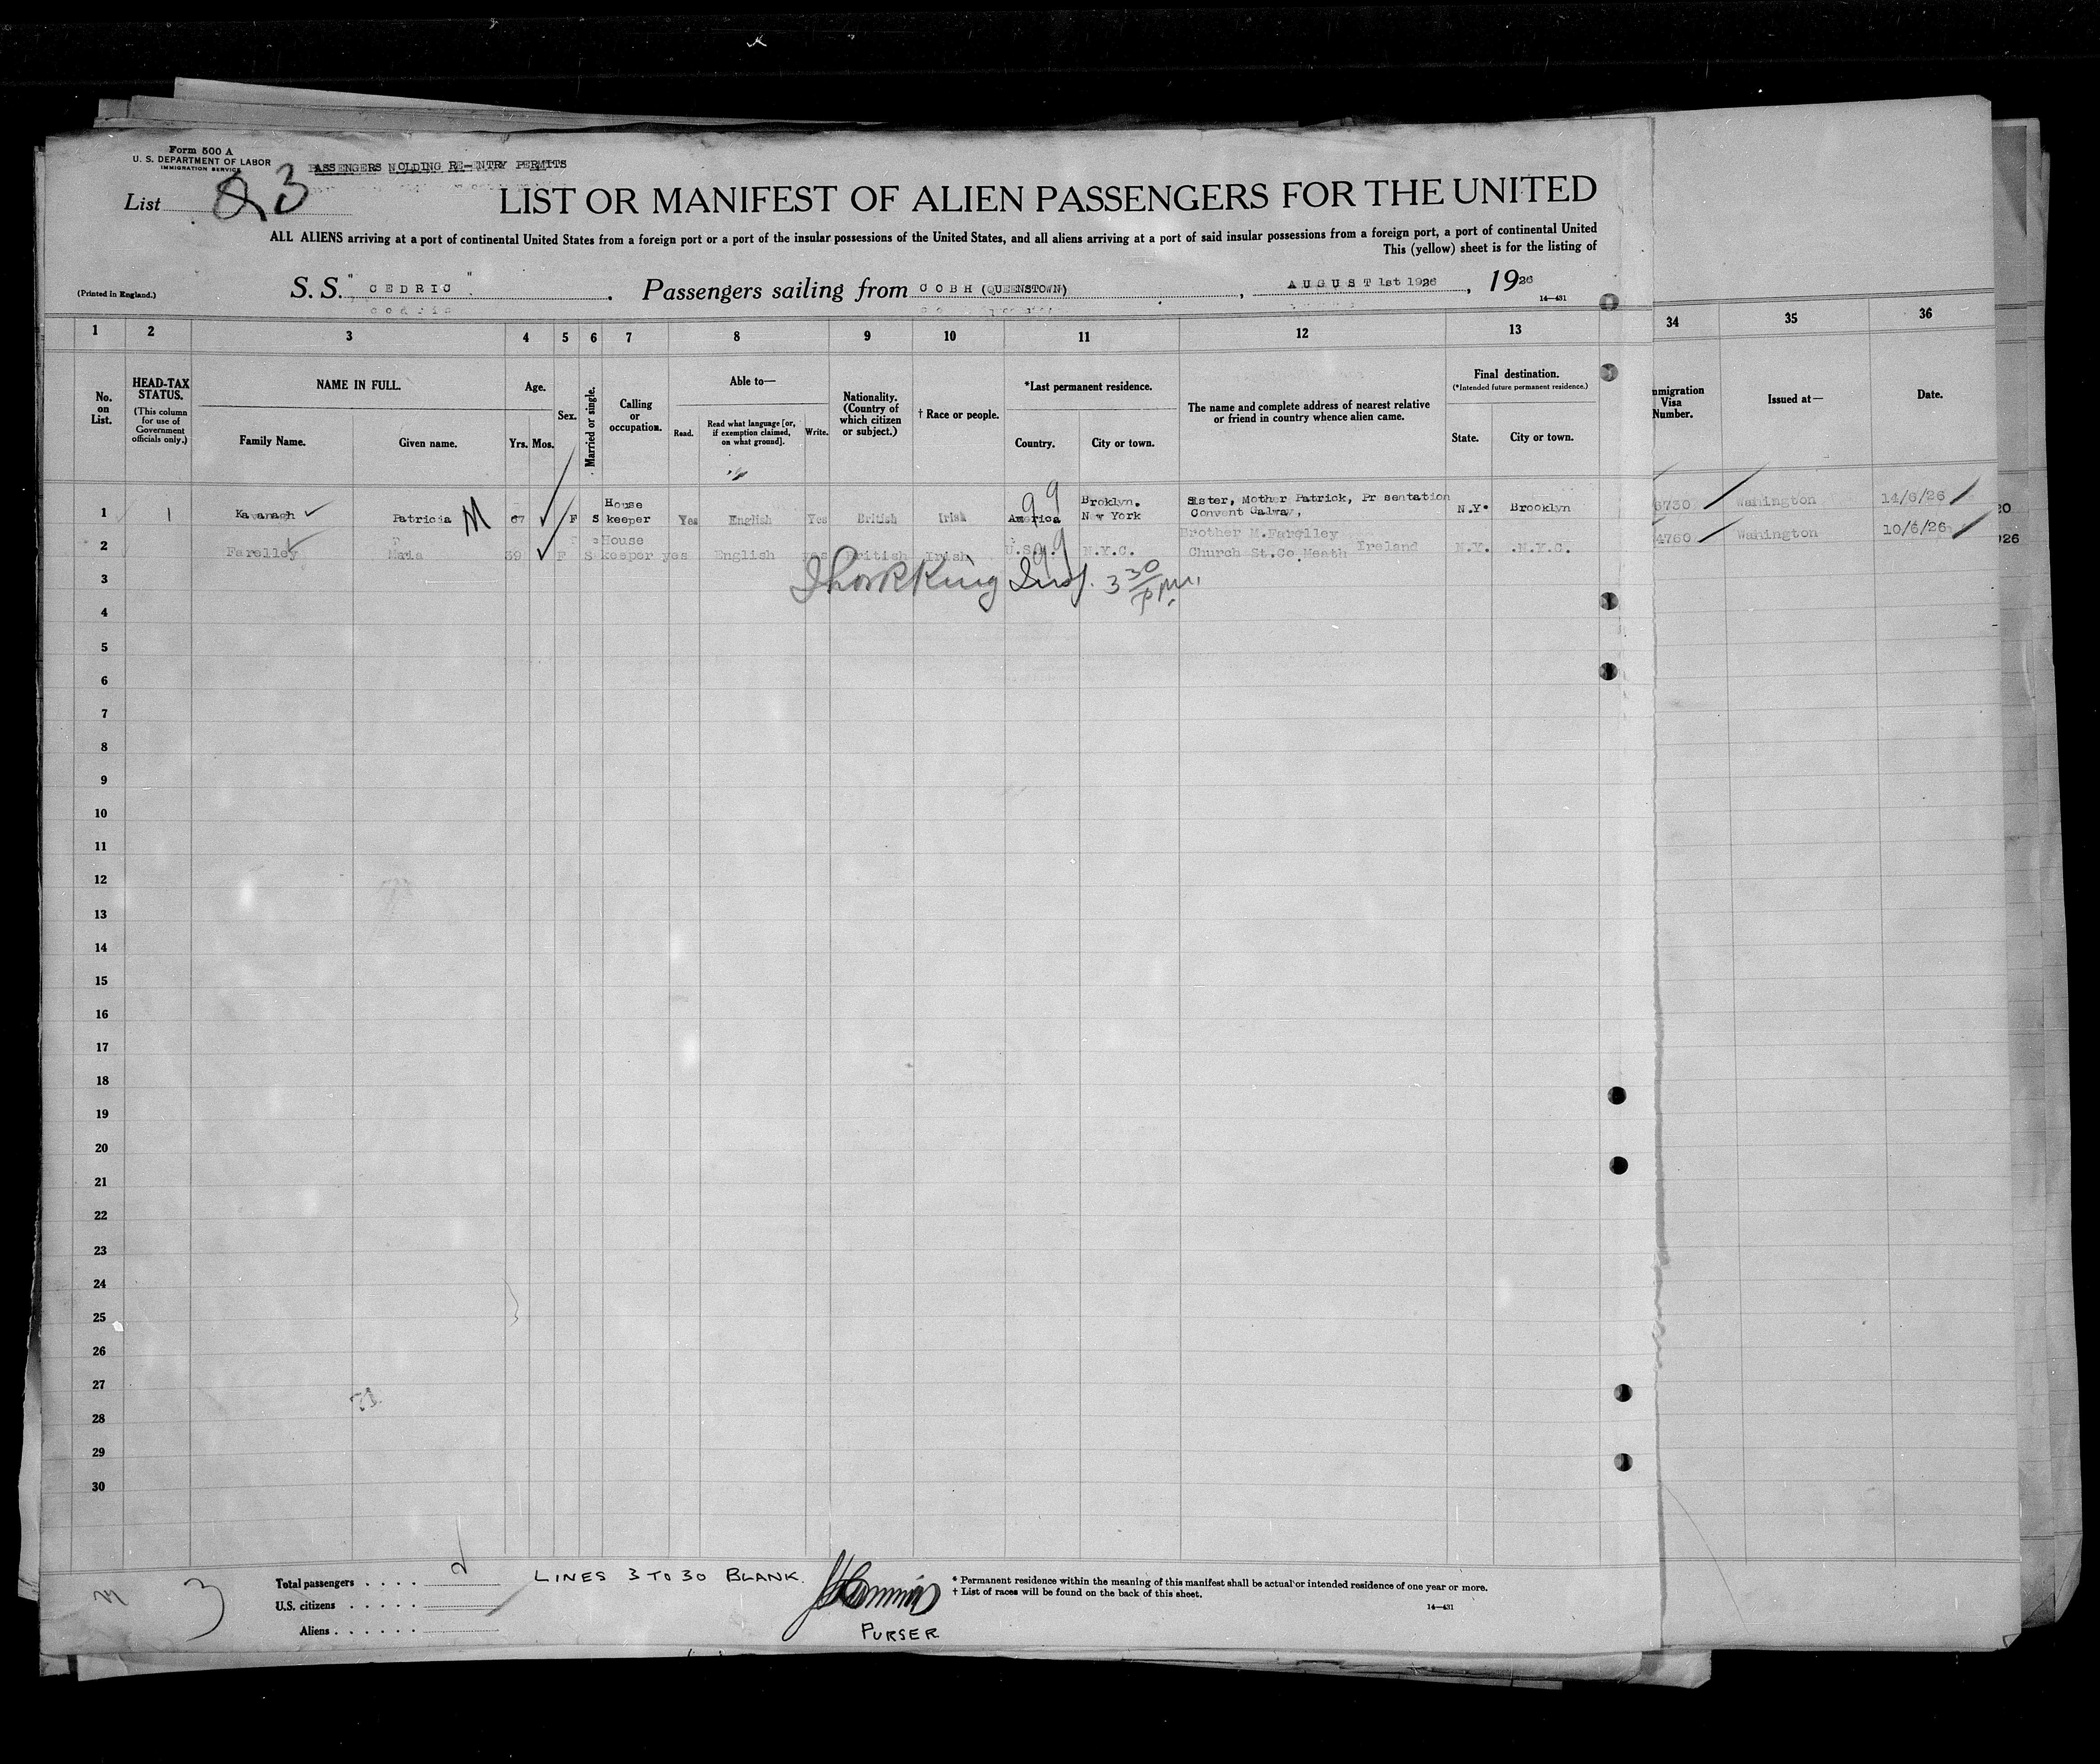 Form 500 A
U. S. DEPARTMENT OF LABOR
IMMIGRATION SERVICE
PASSENGERS NOLDING RE-ENTRY PERMITS
List 83
LIST OR MANIFEST OF ALIEN PASSENGERS FOR THE UNITED
ALL ALIENS arriving at a port of continental United States from a foreign port or a port of the insular possessions of the United States, and all aliens arriving at a port of said insular possessions from a foreign port, a port of continental United
This (yellow) sheet is for the listing of
(Printed in England.)
S. S. "CEDRIC". Passengers sailing from COBH (QUEENSTOWN), AUGUST 1st 1926, 1926
14—431
1 2 3 4 5 6 7 8 9 10 11 12 13 34 35 36
No. on List.
HEAD-TAX STATUS.
(This column for use of Government officials only.)
NAME IN FULL.
Family Name. Given name.
Age.
Yrs. Mos.
Sex.
Married or single.
Calling or occupation.
Able to—
Read. Read what language [or, if exemption claimed, on what ground]. Write.
Nationality. (Country of which citizen or subject.)
† Race or people.
*Last permanent residence.
Country. City or town.
The name and complete address of nearest relative or friend in country whence alien came.
Final destination.
(*Intended future permanent residence.)
State. City or town.
mmigration Visa Number.
Issued at—
Date.
1 1 Kavanagh Patricia M 67 F S House keeper Yes English Yes British Irish America Broklyn. New York Sister, Mother Patrick, Pr sentation Convent Galway, N.Y. Brooklyn 6730 Wahington 14/6/26
2 Farelley Maria 39 F S House keeper yes English yes British Irish U.S.A. N.Y.C. Brother M.Farelley Church St.Co Meath Ireland N.Y. .N.Y.C. 4760 Wahington 10/6/26
20
926
99
99
3 King Insp. 3 30 pm.
4
5
6
7
8
9
10
11
12
13
14
15
16
17
18
19
20
21
22
23
24
25
26
27
28
29
30
M 3
Total passengers . . . .
U.S. citizens . . . . .
Aliens . . . . . .
LINES 3 TO 30 BLANK.
PURSER
* Permanent residence within the meaning of this manifest shall be actual or intended residence of one year or more.
† List of races will be found on the back of this sheet.
14—431